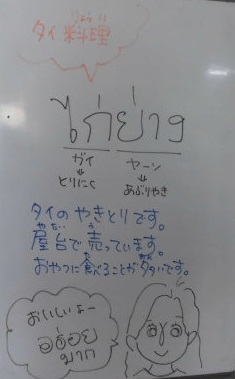 りょうり
タイ料理
ไก่ย่าง
ガイ ヤーン
とりにく あぶりやき
タイのやきとりです。
やたい う
屋台で売っています。
た おお
おやつに食べることが多いです。
おいしいよー
อร่อย
มาก